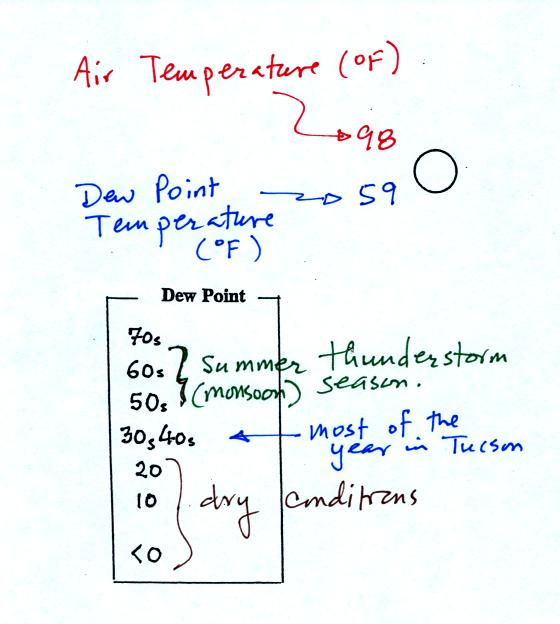 Air Temperature (°F)
98
Dew Point
Temperature
(°F)
59
Dew Point
70s
60s
50s
Summer thunderstorm
(monsoon) season.
30s40s
most of the
year in Tucson
20
10
<0
dry conditions